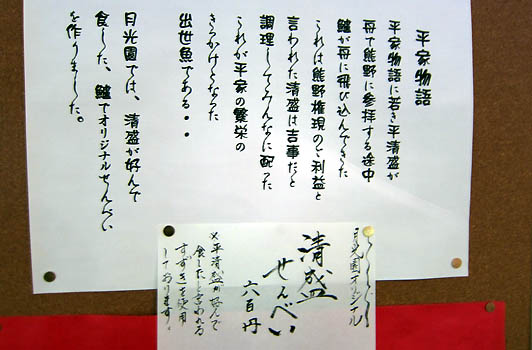 平家物語
平家物語に若き平清盛が
舟で熊野に参拝する途中
鱸が舟に飛び込んできた
これは熊野権現のご利益と
言われた清盛は吉事だと
調理してみんなに配った
これが平家の繁栄の
きっかけとなった
出世魚である・・
月光園では、清盛が好んで
食した、鱸でオリジナルせんべい
を作りました。
月光園オリジナル
清盛
せんべい
六百円
※平清盛が好んで
食したと言われる
すずきを使用
しております。